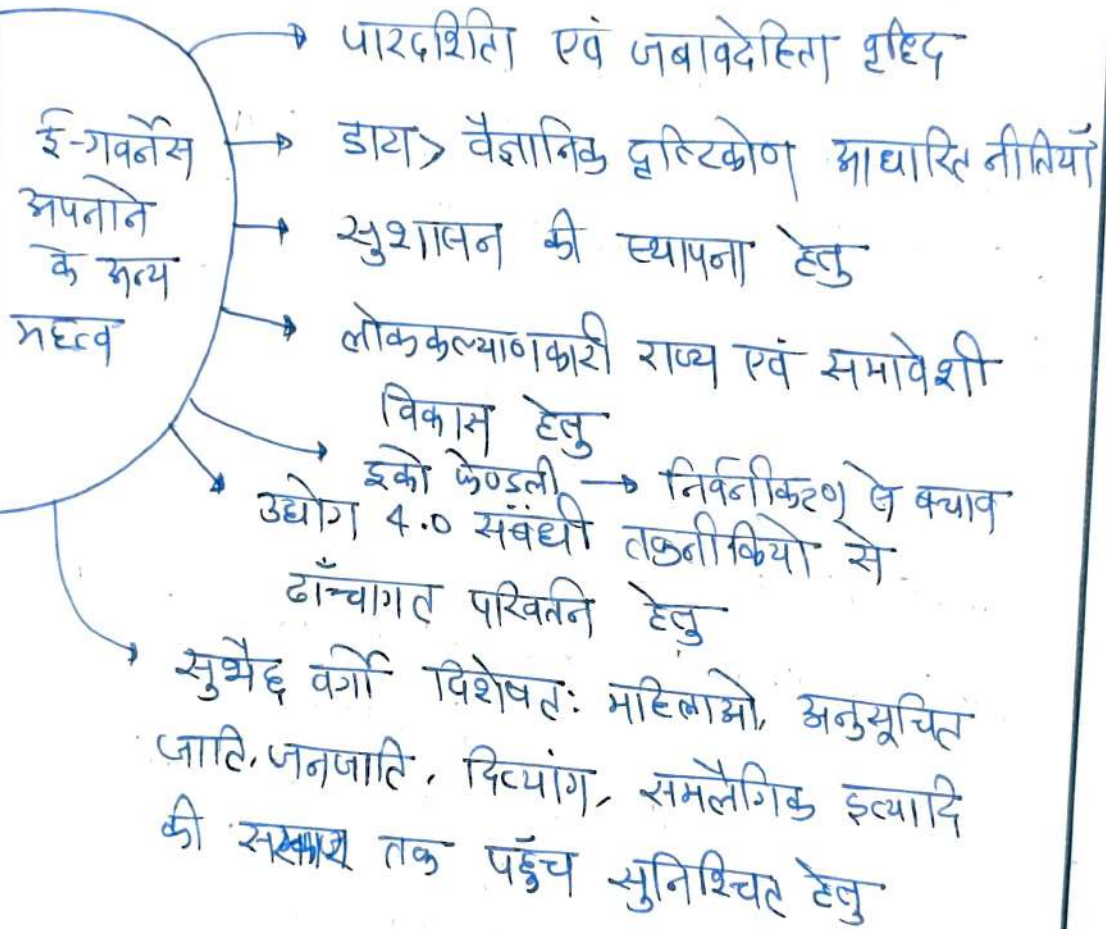 ई-गवर्नेस
अपनाने
के अन्य
महत्व
पारदर्शिता एवं जबावदेहिता वृध्दि
डाटा> वैज्ञानिक दृष्टिकोण आधारित नीतियाँ
सुशासन की स्थापना हेतु
लोककल्याणकारी राज्य एवं समावेशी
विकास हेतु
इको फ्रेण्डली → निर्वनीकरण से बचाव
उद्योग 4.0 संबंधी तकनीकियो से
ढाँचागत परिवर्तन हेतु
सुभेद्द वर्गो विशेषत: महिलाओ, अनुसूचित
जाति, जनजाति, दिव्यांग, समलैगिक इत्यादि
की सरकार तक पहुँच सुनिश्चित हेतु